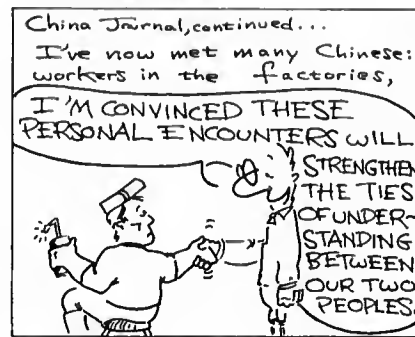 China Journal, continued...
I've now met many Chinese:
workers in the factories,
I'M CONVINCED THESE
PERSONAL ENCOUNTERS WILL
STRENGTHEN
THE TIES
OF UNDER-
STANDING
BETWEEN
OUR TWO
PEOPLES.